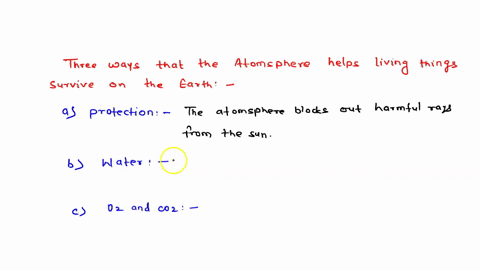 Three ways that the Atomsphere helps living things
survive on the Earth:-
a) protection:- The atomsphere blocks out harmful rays
from the sun.
b) Water:-
c) O2 and CO2:-